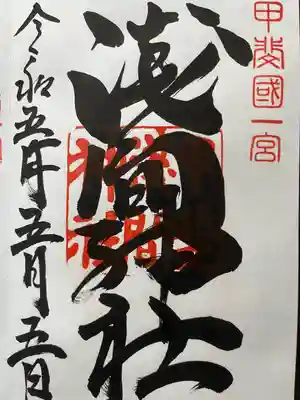 甲斐國一宮
浅間神社
令和五年五月五日